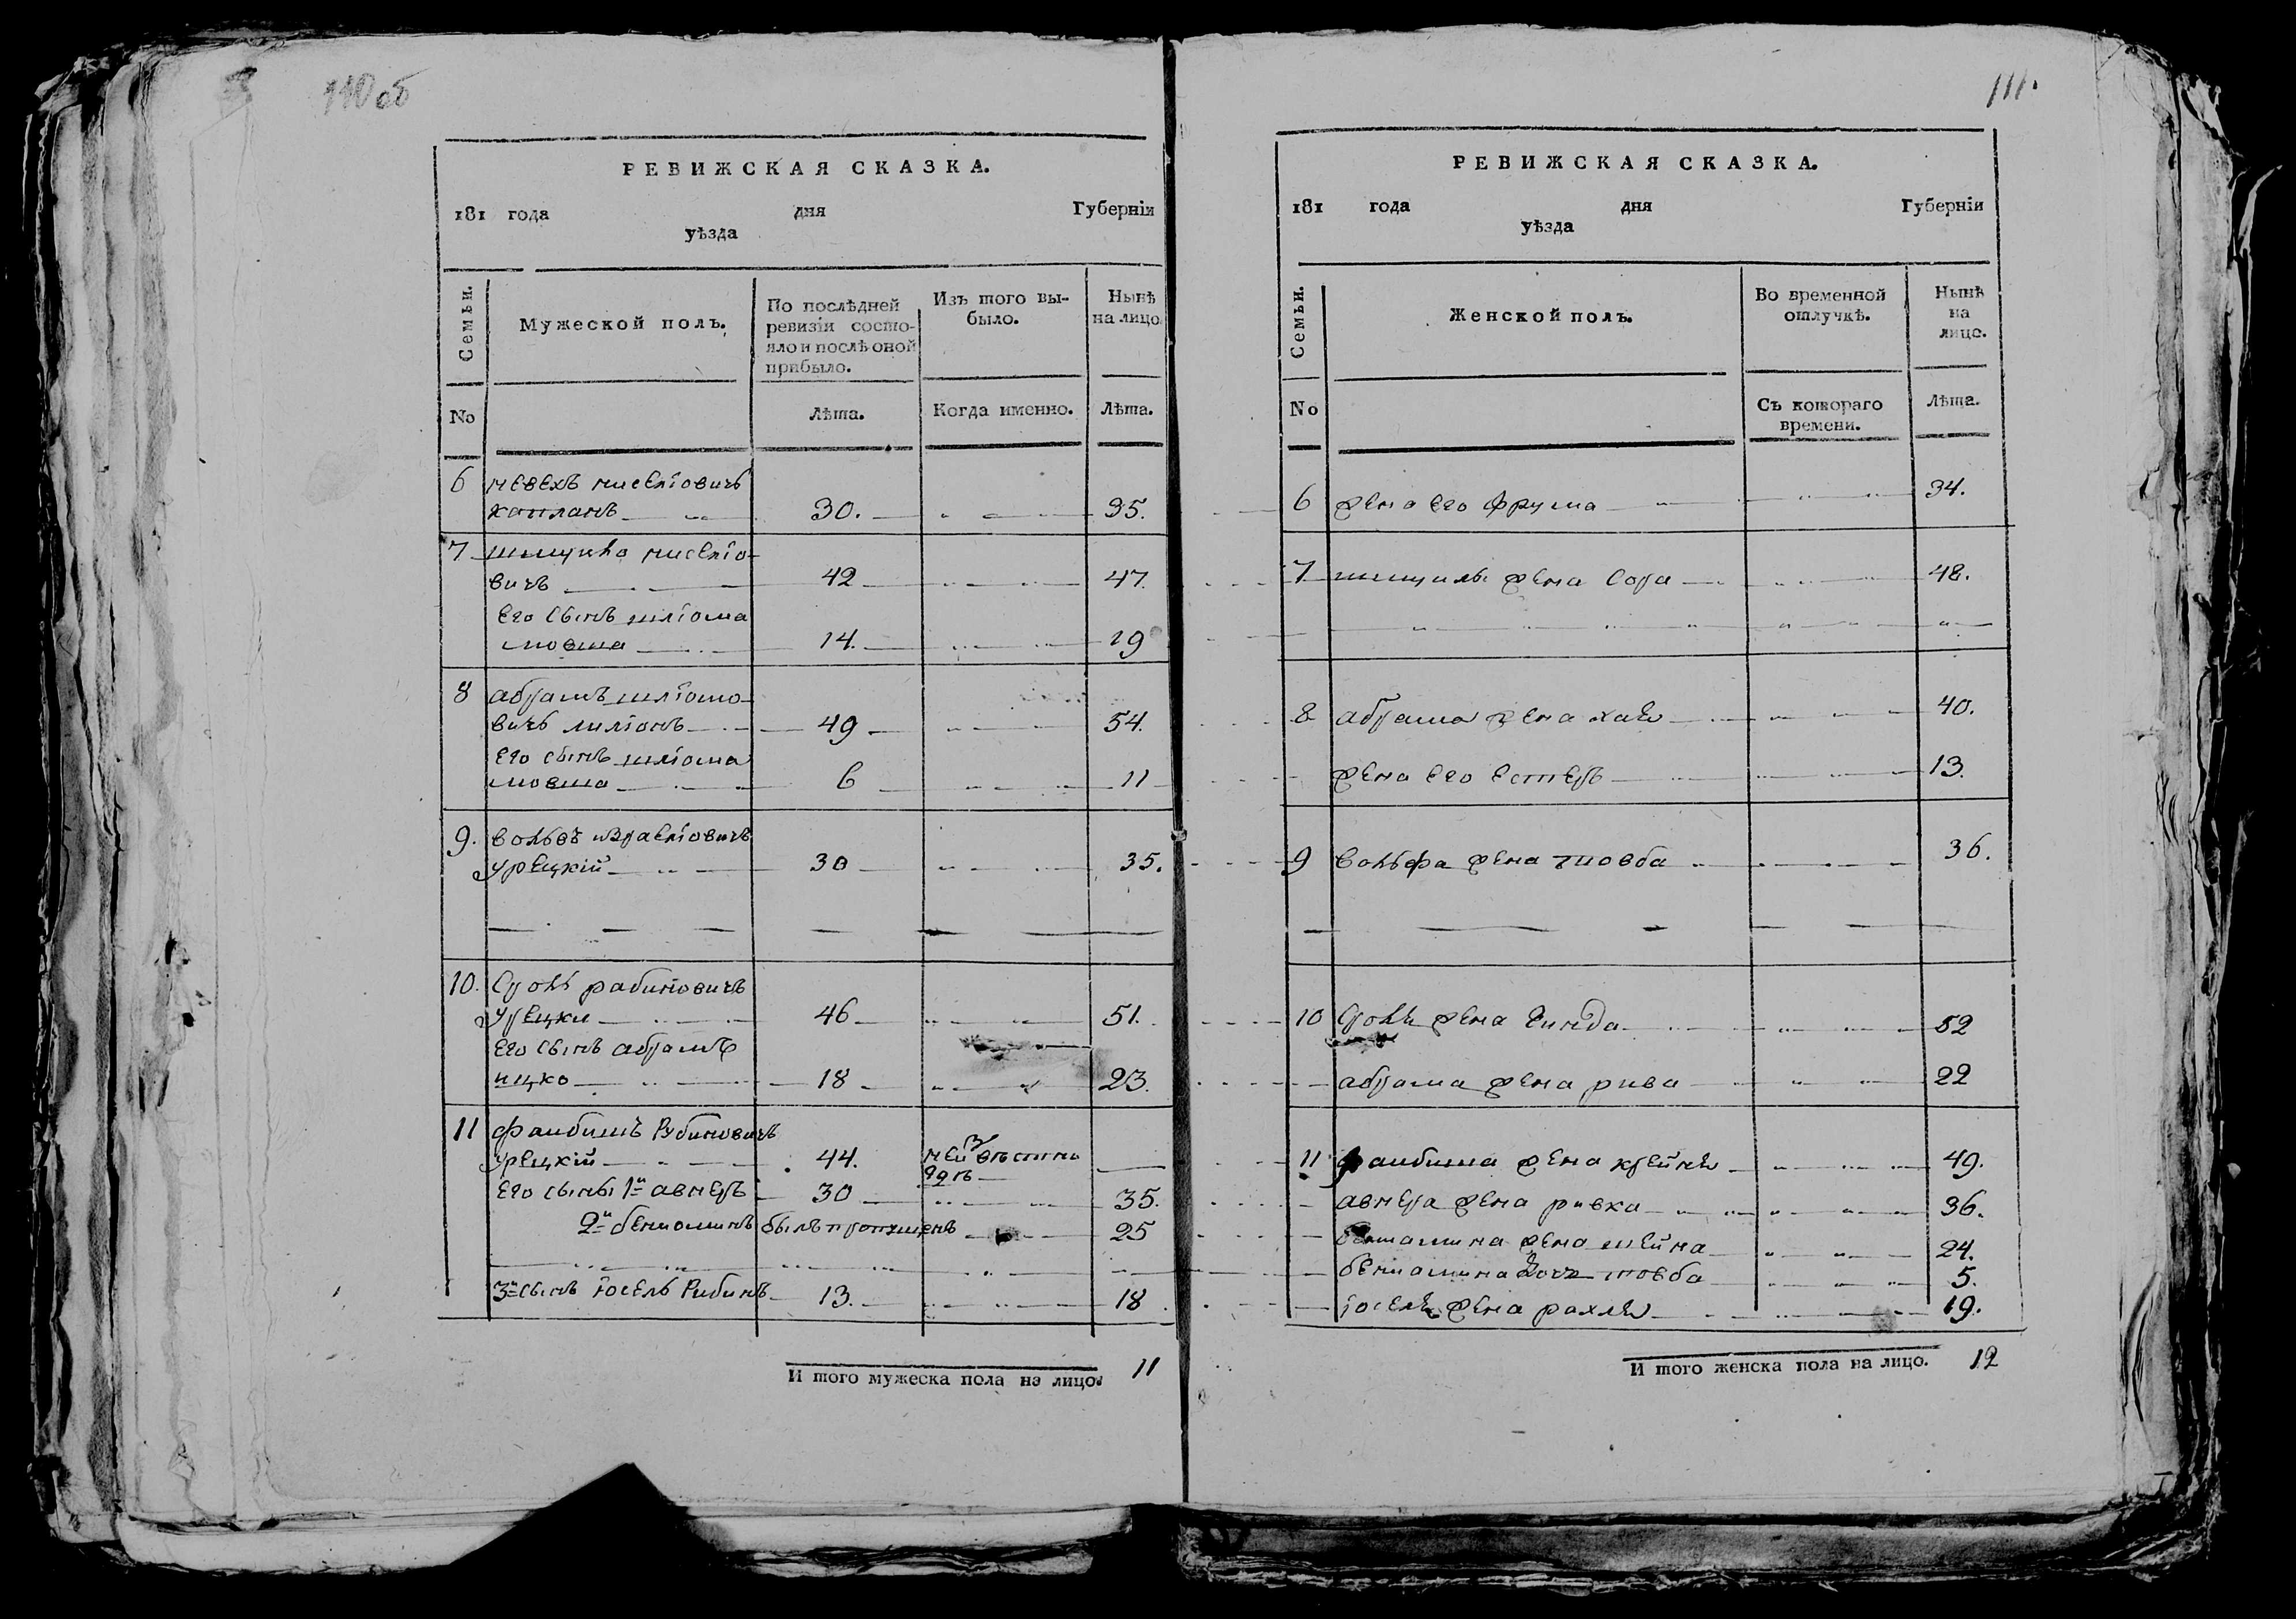 110 об
РЕВИЖСКАЯ СКАЗКА.
181 года дня Губерніи
уѣзда
Семьи.
Мужеской полъ.
По послѣдней
ревизіи состо-
яло и послѣ оной
прибыло.
Изъ того вы-
было.
Нынѣ
на лицо
No
Лѣта.
Когда именно.
Лѣта.
6 мевехъ миселіовичъ
капланъ 30. 35.
7 шмуйло миселіо-
вичъ 42 47.
его сынъ шліома
мовша 14. 19
8 абрамъ шліомо-
вичъ лиліонъ 49 54.
его сынъ шліома
мовша 6 11
9. вольфъ израеліовичъ
урецкій 30 35.
10. Сроль рабиновичъ
урецки 46 51.
его сынъ абрамъ
ицко 18 23.
11 фаибишъ Рубиновичъ
урецкій 44. неизвѣстно
гдѣ
его сыны 1й авнеръ 30 35.
2й бениоминъ былъ пропущенъ 25
3й сынъ іосель Рибинъ 13. 18
И того мужеска пола на лицо 11
111.
РЕВИЖСКАЯ СКАЗКА.
181 года дня Губерніи
уѣзда
Семьи.
Женской полъ.
Во временной
отлучкѣ.
Нынѣ
на
лицо.
No
Съ котораго
времени.
Лѣта.
6 жена его фрума 34.
7 шмуилы жена Сора 48.
8 абрама жена хая 40.
жена его естеръ 13.
9 вольфа жена товба 36.
10 Сроль жена Гинда 52
абрама жена рива 22
11 фаибиша жена крейня 49.
авнера жена ривка 36.
бениамина жена шейна 24.
бениамина дочь товба 5.
іоселя жена рахля 19.
И того женска пола на лицо. 12